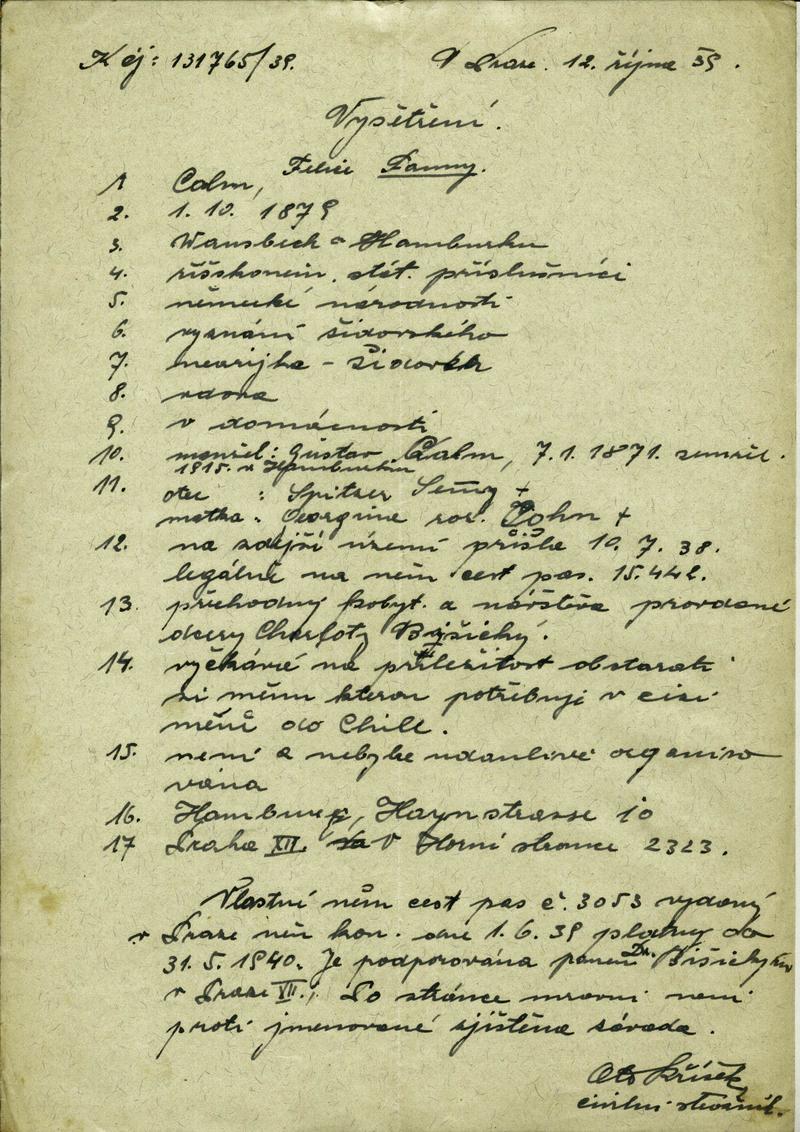 K čj: 131765/39. V Praze. 12. října 39.
Vyšetření.
1 Calm, Felice Fanny.
2. 1. 10. 1879
3. Wansbeck o Hamburku
4. říšskoněm. stát. příslušnicí
5. německé národnosti
6. vyznání židovského
7. nearijka - židovka
8. vdova
9. v domácnosti
10. manžel: Gustav Calm, 7.1.1871. zemřel.
1915. v Hamburku
11. otec : Spitzer +
matka: Georgine roz. Cohn +
12. na zdejší území přišla 10. 7. 38.
legálně na něm cest pas. 15.442.
13. přechodný pobyt. a návštěva provdané
dcery Charloty Bišický.
14. vyčkává na příležitost obstarati
si měnu kterou potřebuji v cizí
měně do Chille.
15. není a nebyla organiso
vána
16. Hamburg, Haynstrasse 10
17 Praha XII. V Horní stromce 2323.
Vlastní něm cest pas č. 3053 vydaný
v Praze něm kon. dne 1.6.39 platný do
31.5.1940. Je podporována panem Dr. Bišickým
v Praze VII. Po stránce mravní není
proti jmenované zjištěna závada.
Oto Kříšek
civilní strážník.